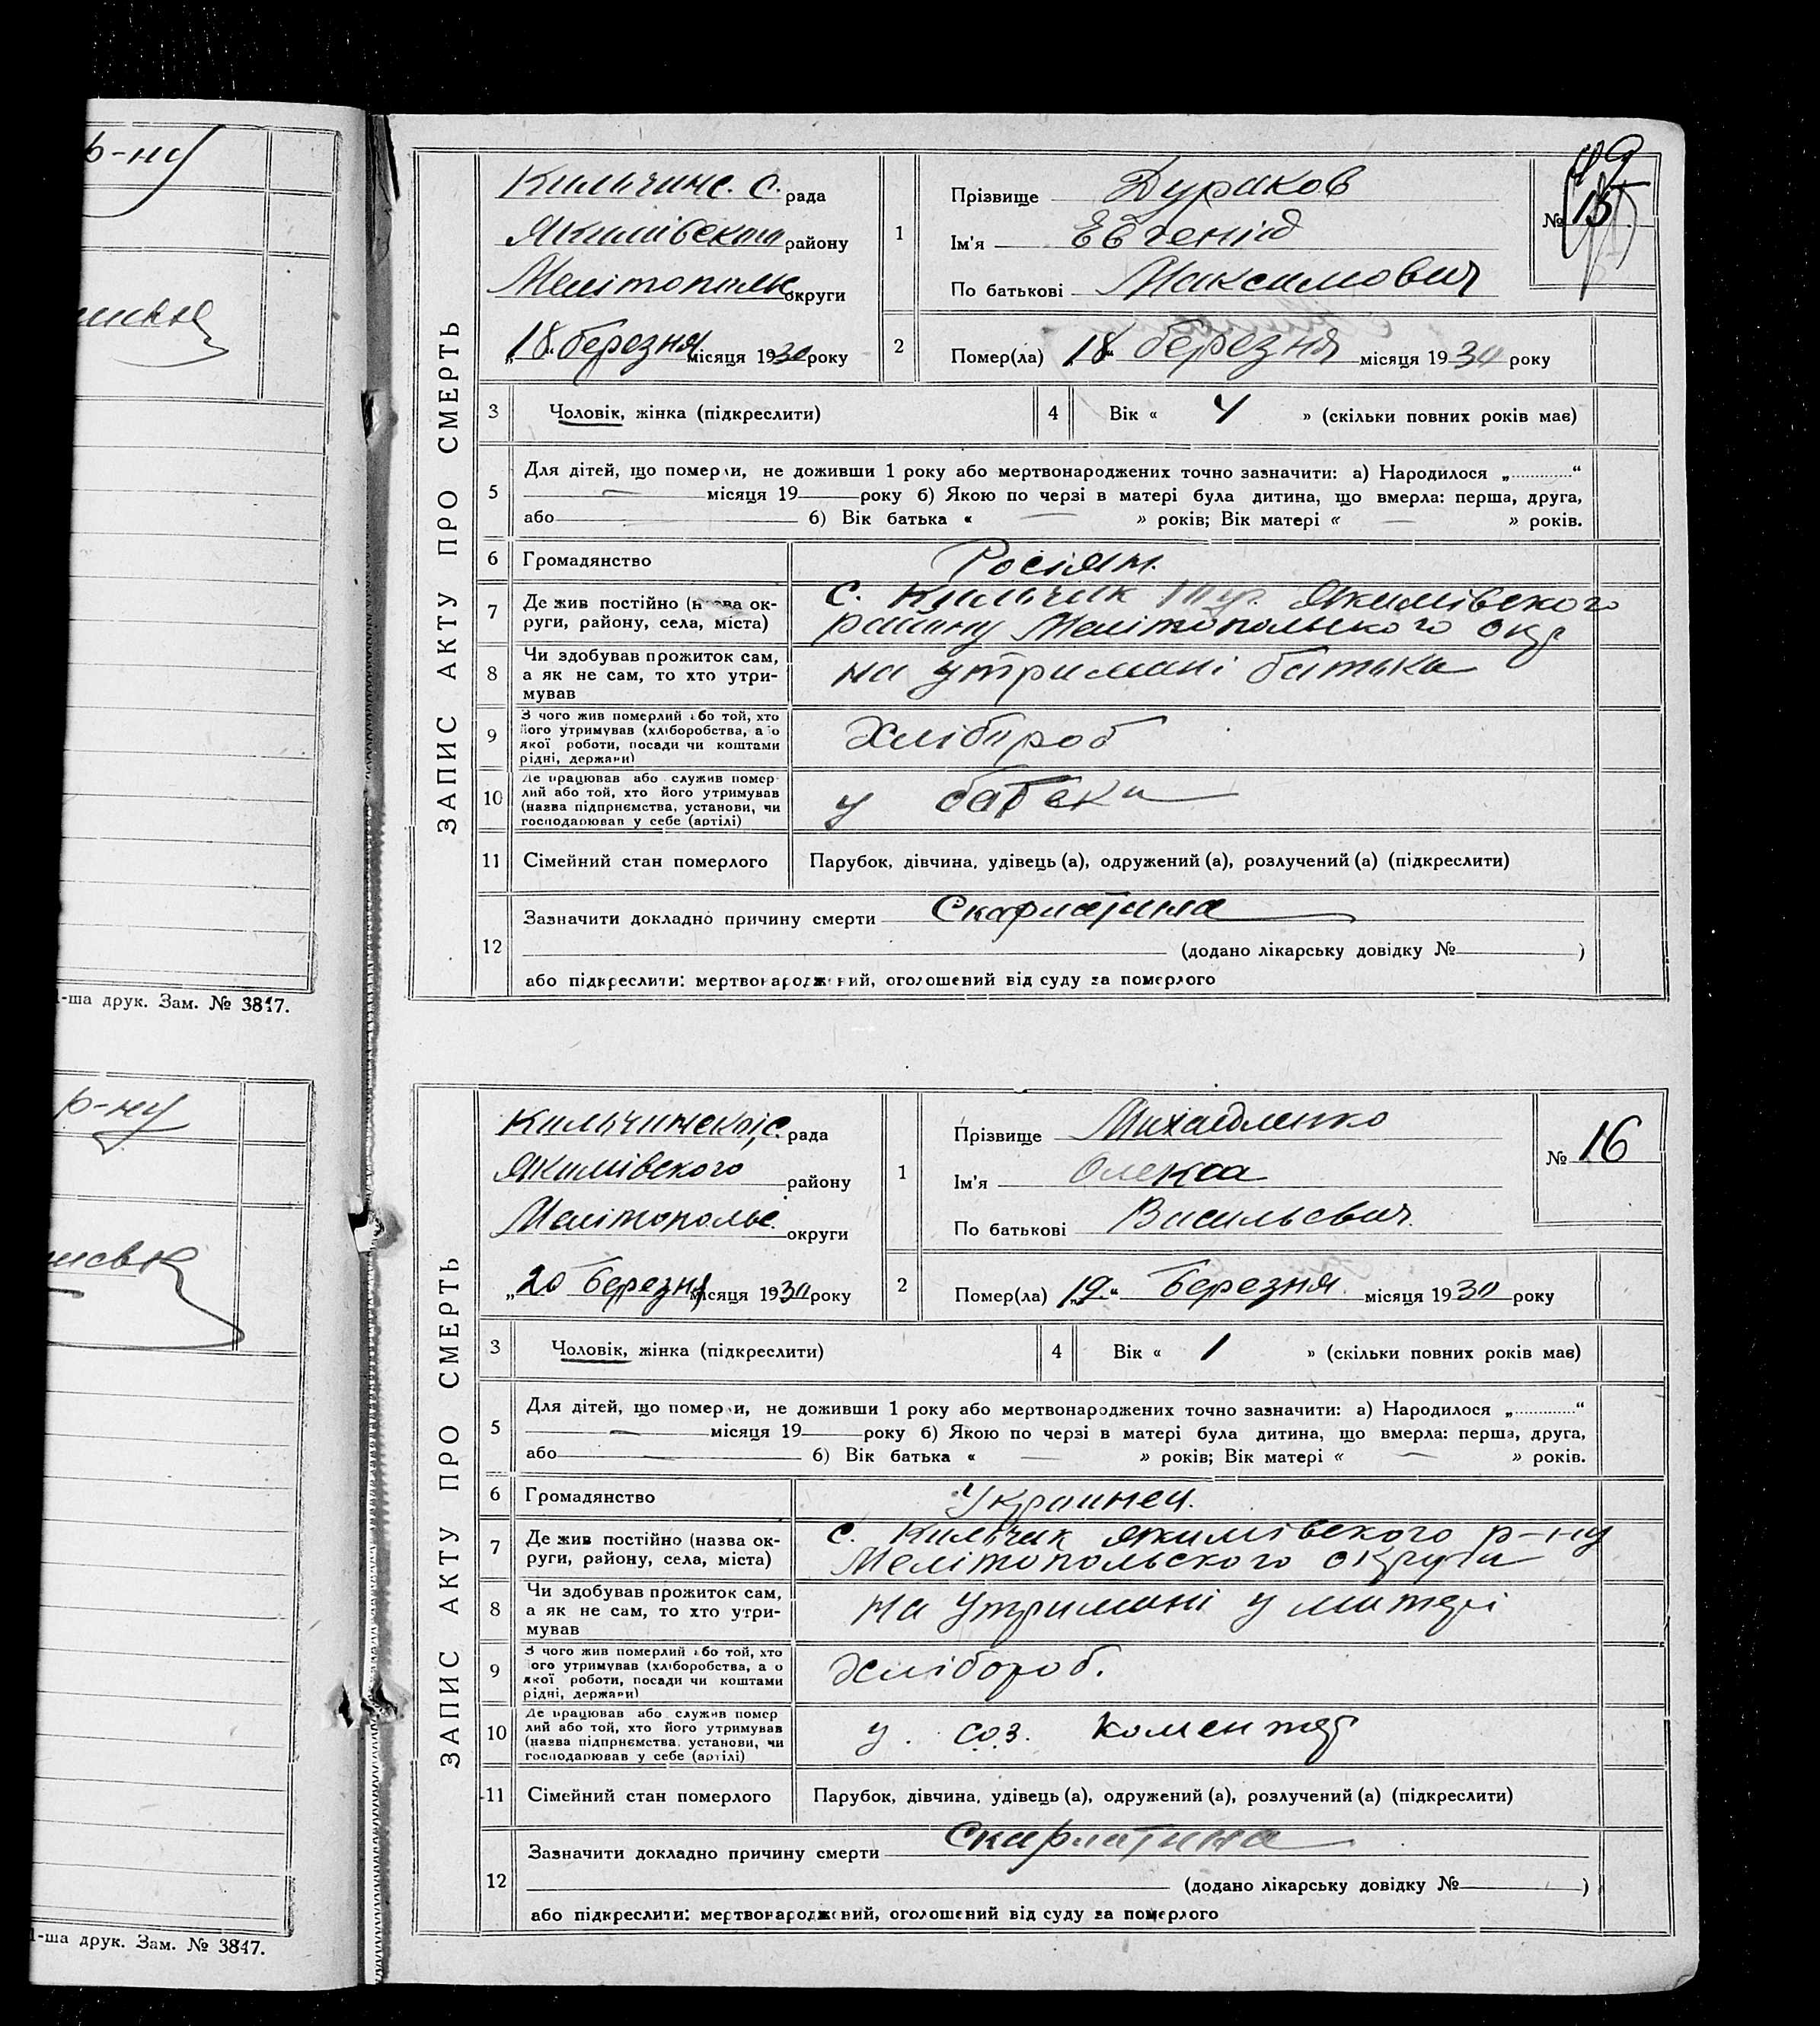 р-ну
1-ша друк. Зам. № 3817.
р-ну
1-ша друк. Зам. № 3817.
ЗАПИС АКТУ ПРО СМЕРТЬ
Кильчинс. С. рада
Якимівськ району
Мелітопольс округи
„18„ березня місяця 1930 року
1
Прізвище Дураков
Ім'я Евгеній
По батькові Максимович
№ 15
49
2
Помер(ла) „18“ березня місяця 1930 року
3 Чоловік, жінка (підкреслити)
4 Вік « 4 » (скільки повних років має)
5 Для дітей, що померли, не доживши 1 року або мертвонароджених точно зазначити: а) Народилося „.............“
— місяця 19 року б) Якою по черзі в матері була дитина, що вмерла: перша, друга,
або б) Вік батька « — » років; Вік матері « — » років.
6 Громадянство Росіян.
7 Де жив постійно (назва ок-
руги, району, села, міста)
с. Кильчик Якимівского
району Мелітопольского окр
8 Чи здобував прожиток сам,
а як не сам, то хто утри-
мував
на утримані батька
9 З чого жив померлий або той, хто
його утримував (хліборобства, або
якої роботи, посади чи коштами
рідні, держави)
Хлібороб
10 Де працював або служив помер-
лий або той, хто його утримував
(назва підприємства, установи, чи
господарював у себе (артілі)
у батька
11 Сімейний стан померлого Парубок, дівчина, удівець (а), одружений (а), розлучений (а) (підкреслити)
12 Зазначити докладно причину смерти Скарлатина
(додано лікарську довідку № )
або підкреслити: мертвонароджений, оголошений від суду за померлого
ЗАПИС АКТУ ПРО СМЕРТЬ
Кильчинскоі с. рада
Якимівского району
Мелітопольс. округи
„20 березня місяця 1930 року
1
Прізвище Михайленко
Ім'я Олекса
По батькові Васильевич.
№ 16
2
Помер(ла) „19.“ березня місяця 1930 року
3 Чоловік, жінка (підкреслити)
4 Вік « 1 » (скільки повних років має)
5 Для дітей, що померли, не доживши 1 року або мертвонароджених точно зазначити: а) Народилося „.............“
— місяця 19 року б) Якою по черзі в матері була дитина, що вмерла: перша, друга,
або б) Вік батька « — » років; Вік матері « — » років.
6 Громадянство Украинец.
7 Де жив постійно (назва ок-
руги, району, села, міста)
с. Кильчик Якимівского р-ну
Мелітопольского округи
8 Чи здобував прожиток сам,
а як не сам, то хто утри-
мував
на утримані у матері
9 З чого жив померлий або той, хто
його утримував (хліборобства, або
якої роботи, посади чи коштами
рідні, держави)
Хлібороб.
10 Де працював або служив помер
лий або той, хто його утримував
(назва підприємства, установи, чи
господарював у себе (артілі)
у . соз.
11 Сімейний стан померлого Парубок, дівчина, удівець (а), одружений (а), розлучений (а) (підкреслити)
12 Зазначити докладно причину смерти Скарлатина
(додано лікарську довідку № )
або підкреслити: мертвонароджений, оголошений від суду за померлого